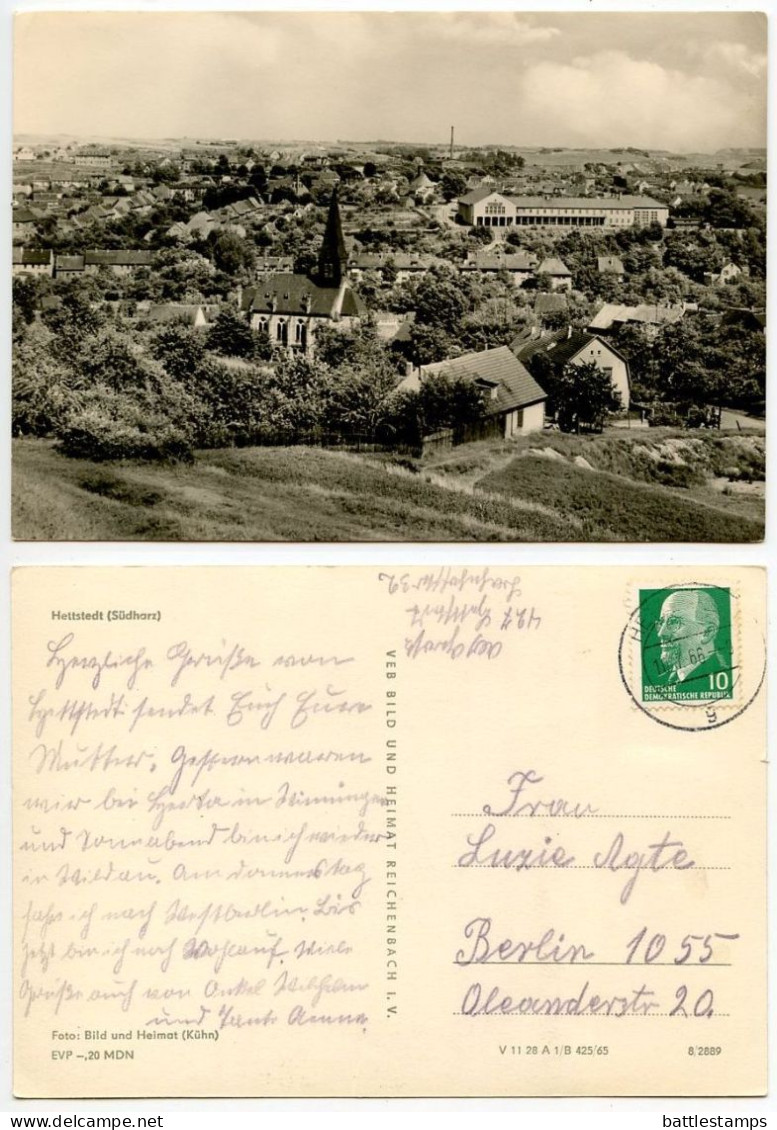 Hettstedt (Südharz)
Herzliche Grüße von
Hettstedt sendet Euch Eure
Mutter. Gestern waren
wir bei Herta in Winningen
und Sonnabend bin ich wieder
in Wildau. Am donnerstag
fahr ich nach Westberlin. Bis
jetzt bin ich noch Wohlauf. Viele
Grüße auch von Onkel Wilhelm
und Tante Aenne.
Foto: Bild und Heimat (Kühn)
EVP –,20 MDN
VEB BILD UND HEIMAT REICHENBACH I. V.
DEUTSCHE
DEMOKRATISCHE REPUBLIK
10
66
g
Frau
Luzie Agte
Berlin 1055
Oleanderstr 20.
V 11 28 A 1/B 425/65
8/2889
battlestamps